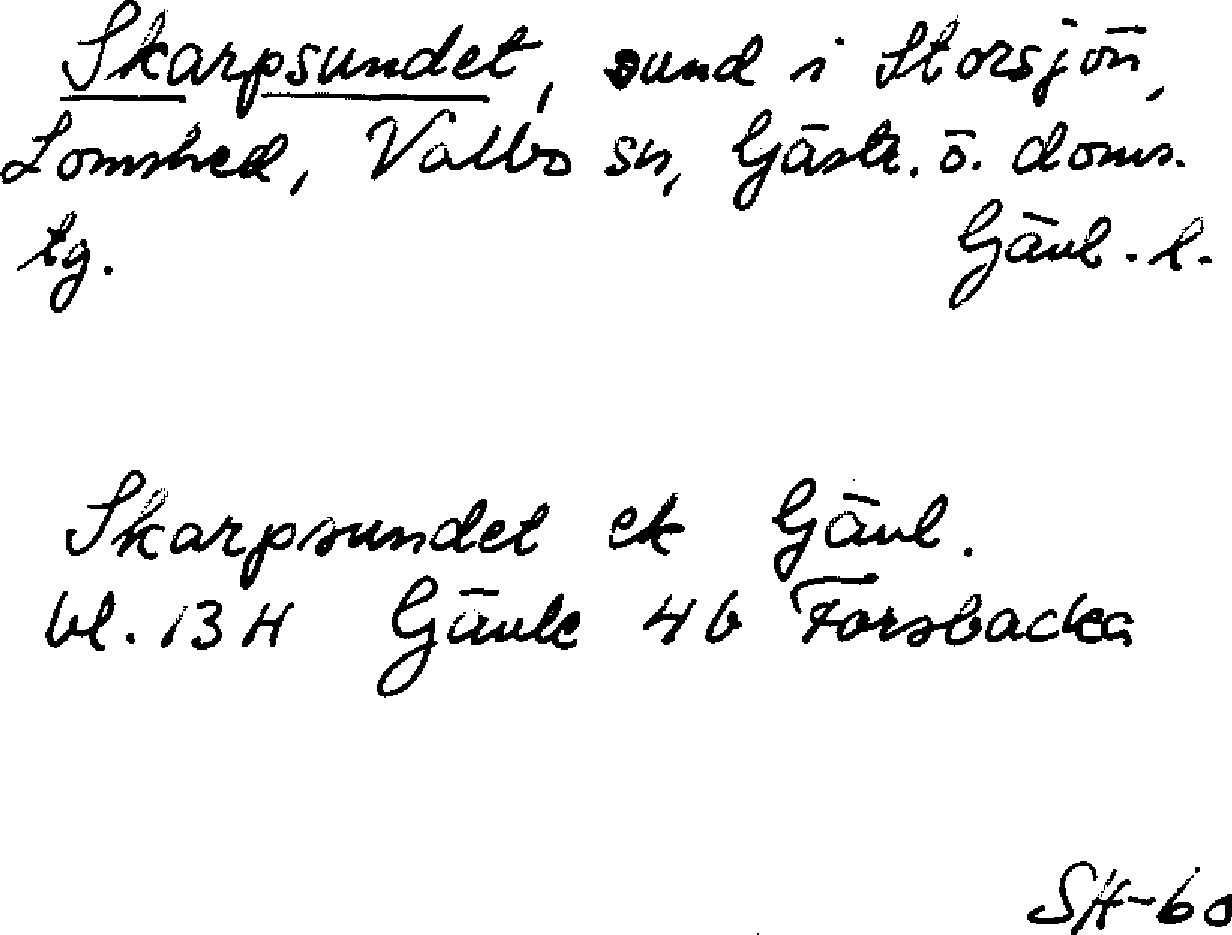 Skarpsundet, sund i Storsjön,
Lomshed, Valbo sn, Gästr. ö. doms.
tg. Gävl. l.
Skarpsundet ek Gävl.
bl. 13 H Gävle 4 b Forsbacka
SH-60